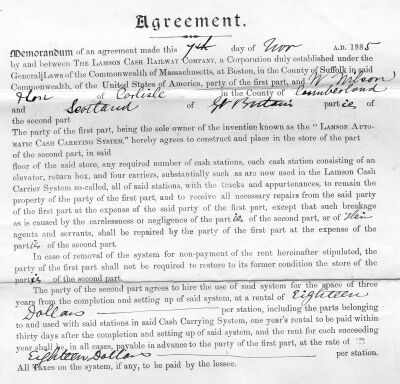 Agreement.
Memorandum of an agreement made this 7th day of Nov A.D. 1885
by and between THE LAMSON CASH RAILWAY COMPANY, a Corporation duly established under the
General Laws of the Commonwealth of Massachusetts, at Boston, in the County of Suffolk in said
Commonwealth, of the United States of America, party of the first part, and W Wilson
of Carlisle in the County of Cumberland
and Scotland of Gt Britain parties of
the second part
The party of the first part, being the sole owner of the invention known as the "LAMSON AUTO-
MATIC CASH CARRYING SYSTEM," hereby agrees to construct and place in the store of the part
of the second part, in said
floor of the said store, any required number of cash stations, each cash station consisting of an
elevator, return box, and four carriers, substantially such as are now used in the Lamson Cash
Carrier System so-called, all of said stations, with the tracks and appurtenances, to remain the
property of the party of the first part, and to receive all necessary repairs from the said party
of the first part at the expense of the said party of the first part, except that such breakage
as is caused by the carelessness or negligence of parties of the second part, or of their
agents and servants, shall be repaired by the party of the first part at the expense of the
parties of the second part.
In case of removal of the system for non-payment of the rent hereinafter stipulated, the
party of the first part shall not be required to restore to its former condition the store of the
parties of the second part.
The party of the second part agrees to hire the use of said system for the space of three
years from the completion and setting up of said system, at a rental of Eighteen
Dollars per station, including the parts belonging
to and used with said stations in said Cash Carrying System, one year's rental to be paid within
thirty days after the completion and setting up of said system, and the rent for each succeeding
year shall be, in all cases, payable in advance to the party of the first part, at the rate of
Eighteen Dollars per station.
All Taxes on the system, if any, to be paid by the lessee.